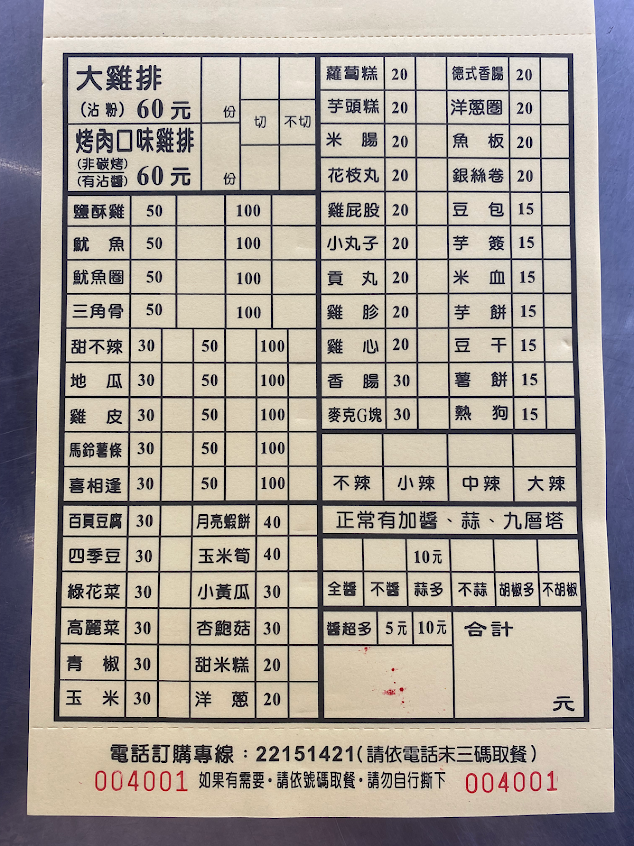 大雞排
(沾粉) 60元 份
切 不切
烤肉口味雞排
(非碳烤)
(有沾醬) 60元 份
鹽酥雞 50 100
魷魚 50 100
魷魚圈 50 100
三角骨 50 100
甜不辣 30 50 100
地瓜 30 50 100
雞皮 30 50 100
馬鈴薯條 30 50 100
喜相逢 30 50 100
百頁豆腐 30 月亮蝦餅 40
四季豆 30 玉米筍 40
綠花菜 30 小黃瓜 30
高麗菜 30 杏鮑菇 30
青椒 30 甜米糕 20
玉米 30 洋蔥 20
蘿蔔糕 20 德式香腸 20
芋頭糕 20 洋蔥圈 20
米腸 20 魚板 20
花枝丸 20 銀絲卷 20
雞屁股 20 豆包 15
小丸子 20 芋簽 15
貢丸 20 米血 15
雞胗 20 芋餅 15
雞心 20 豆干 15
香腸 30 薯餅 15
麥克G塊 30 熱狗 15
不辣 小辣 中辣 大辣
正常有加醬、蒜、九層塔
10元
全醬 不醬 蒜多 不蒜 胡椒多 不胡椒
醬超多 5元 10元 合計
元
電話訂購專線：22151421(請依電話末三碼取餐)
004001 如果有需要・請依號碼取餐・請勿自行撕下 004001